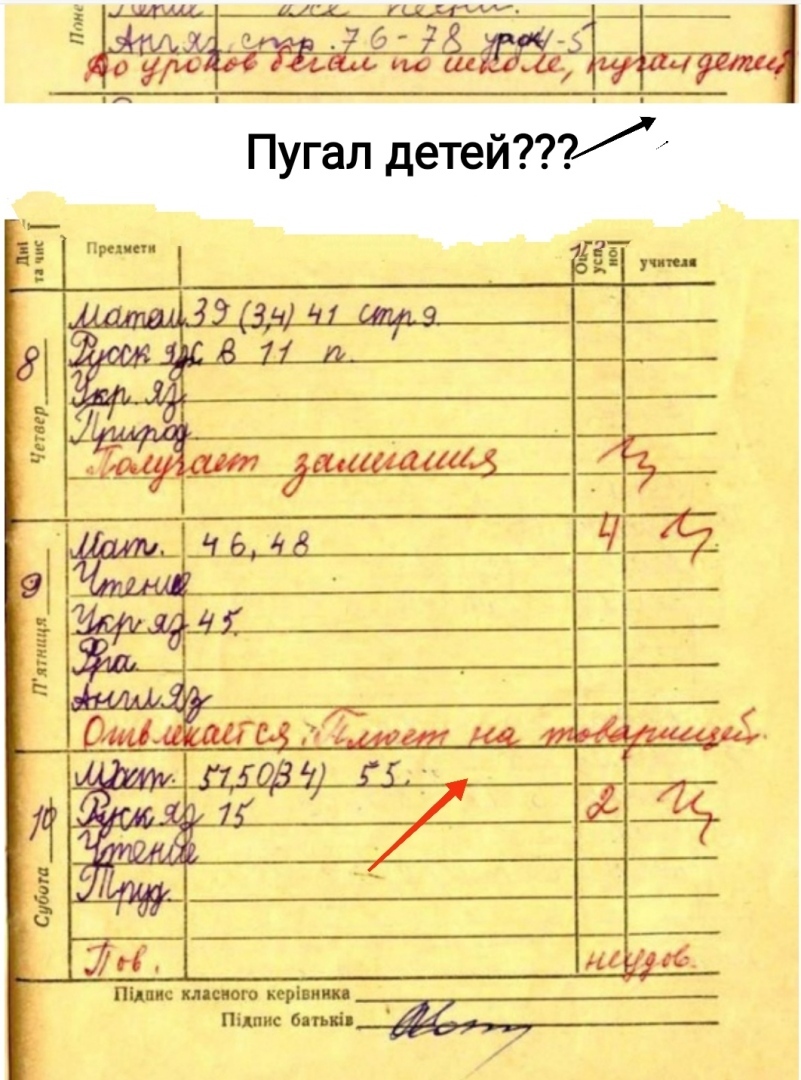 Поне
Пение
песни.
Англ яз. стр. 76-78 урок 4-5
До уроков бегал по школе, пугал детей
Пугал детей???
Дні та чис
Предмети
успі
но
учителя
8
Четвер
Матем. 39 (3,4) 41 стр 9.
Русск яз В 11 п.
Укр. яз.
Природ.
Получает замечания
9
П'ятниця
Мат. 46, 48 4
Чтение
Укр яз 45.
Англ яз
Отвлекается. Плюет на товарищей.
10
Субота
Мат. 51,50(34) 55.
Руск яз 15 2
Чтение
Труд.
Пов. неудов.
Підпис класного керівника
Підпис батьків